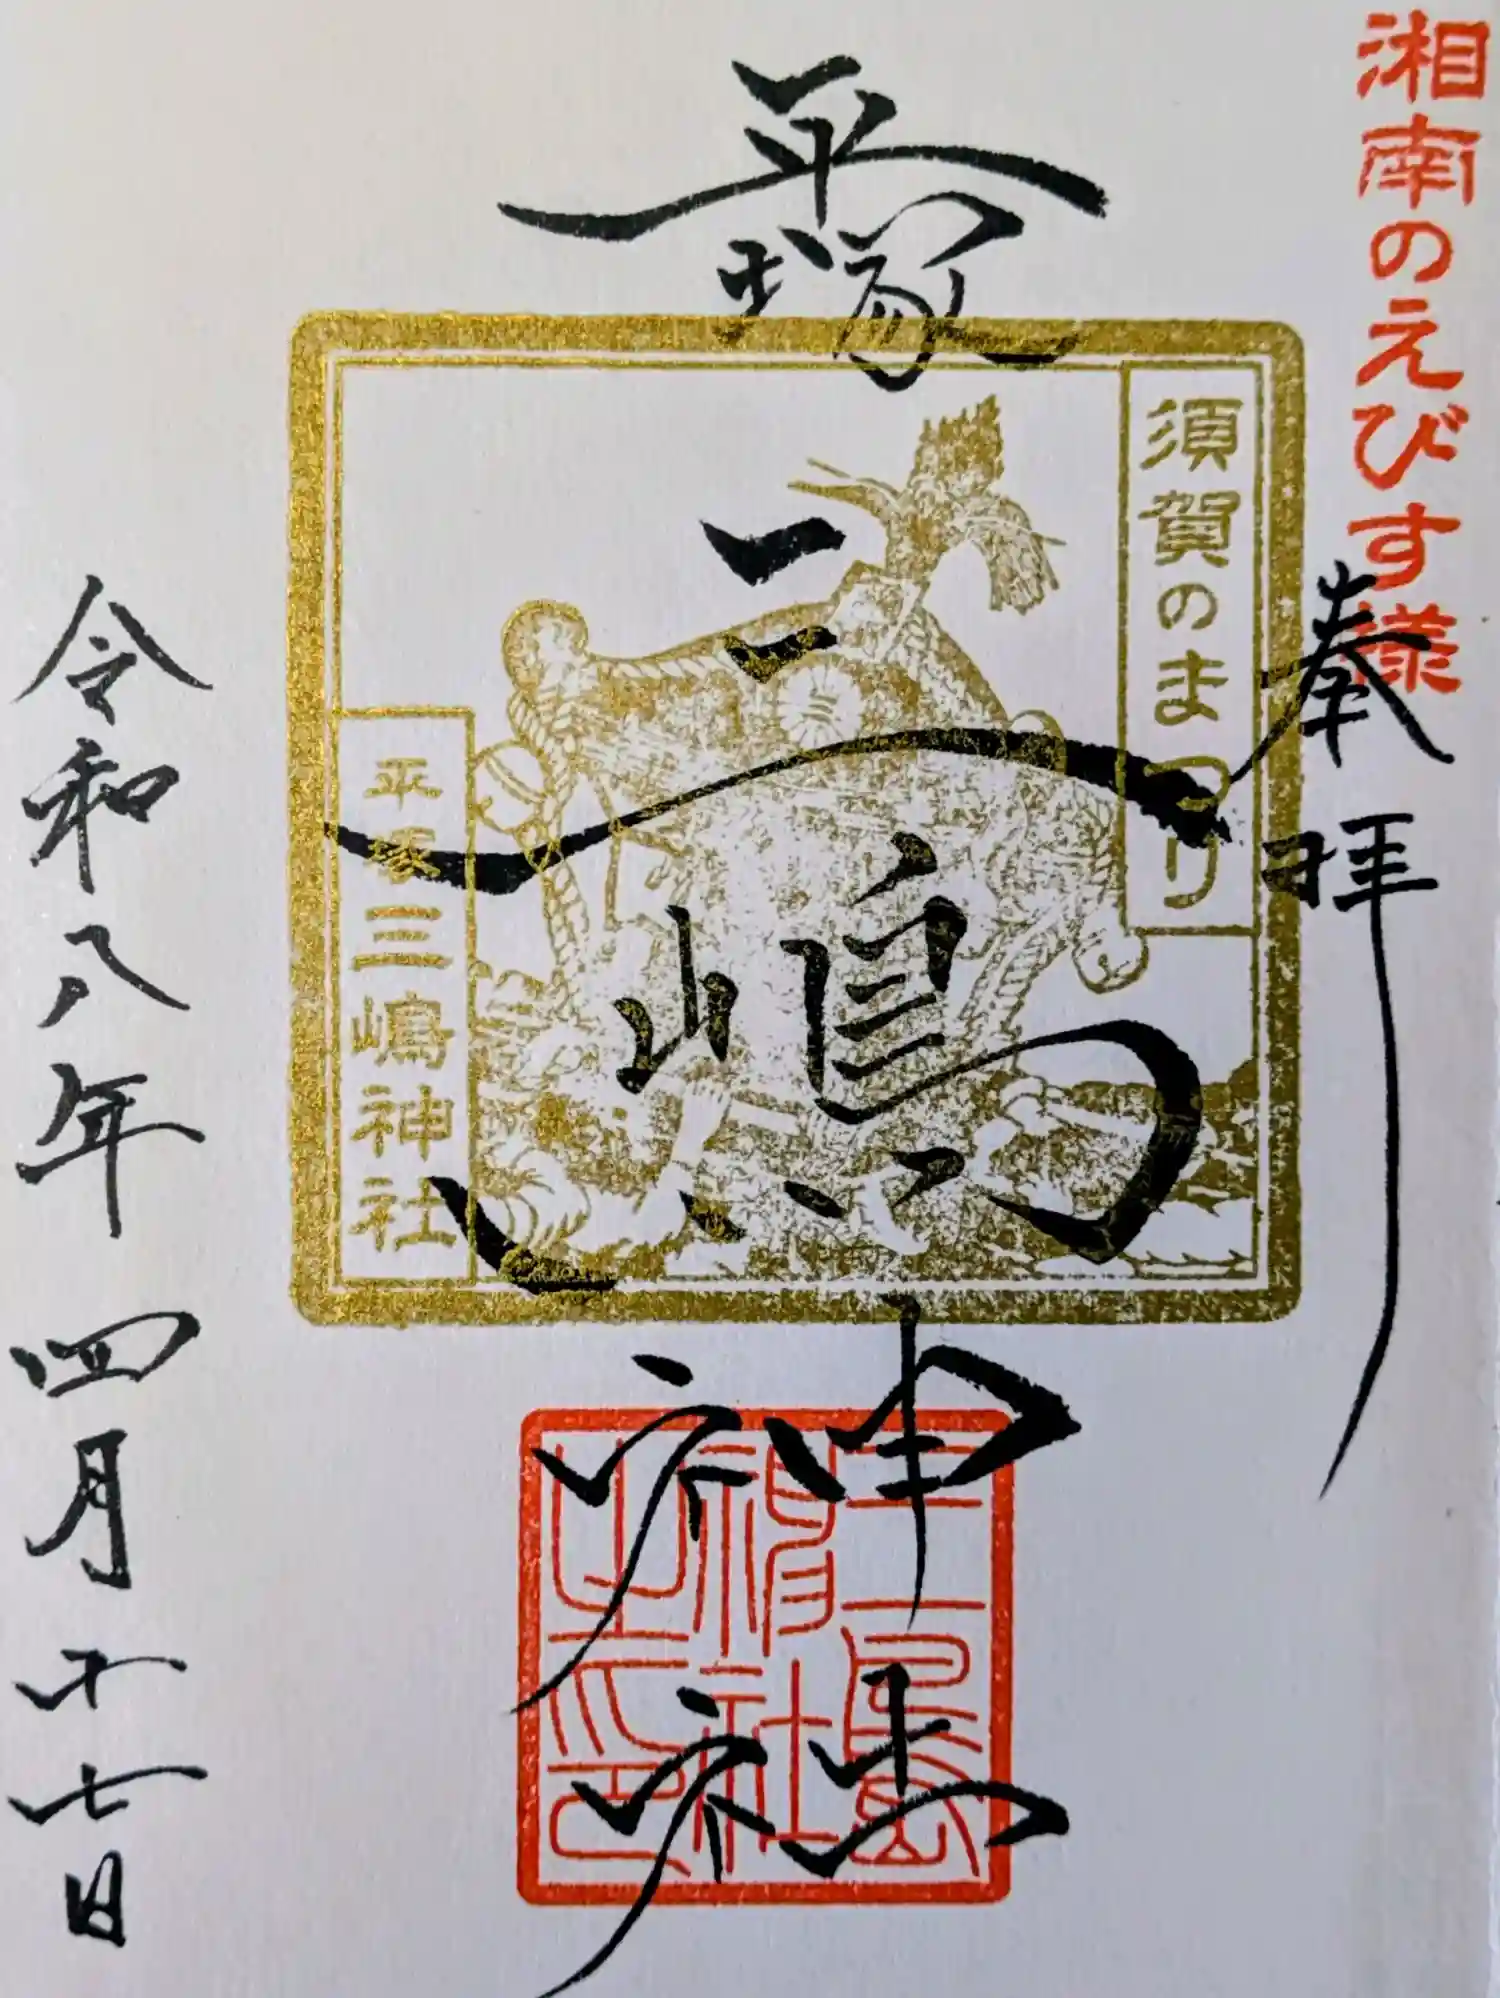 湘南のえびす様
奉拝
平塚三嶋神社
須賀のまつり
平塚三嶋神社
三島神社之印
令和八年四月十七日